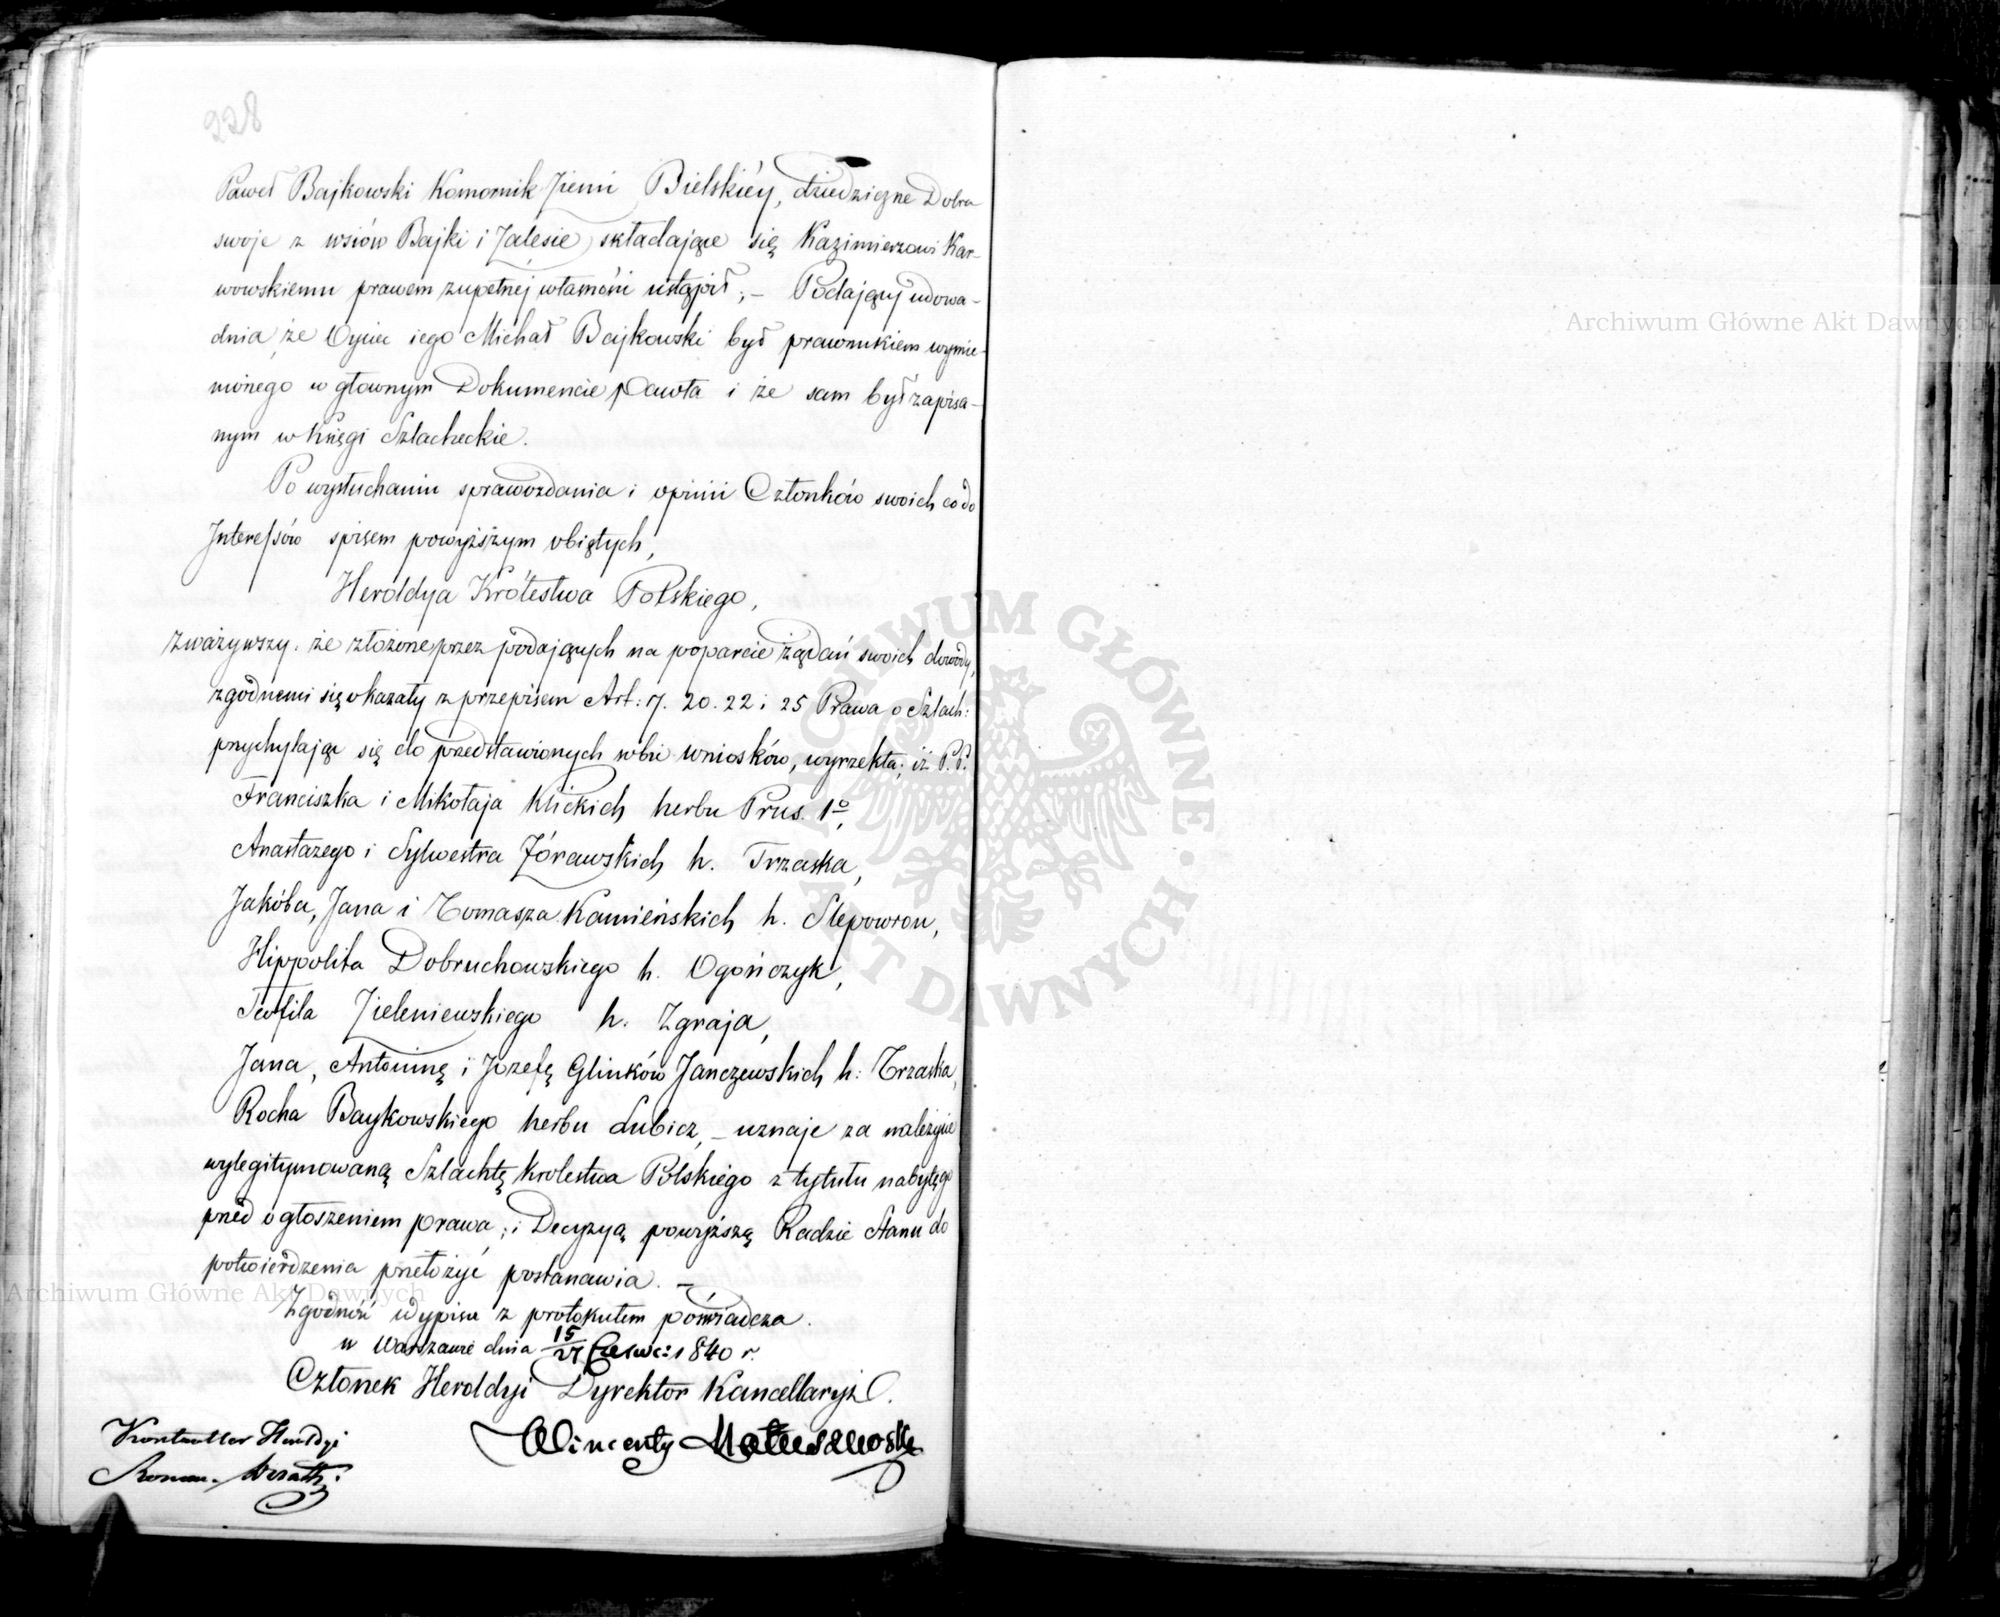 228
Paweł Bajkowski Komornik Ziemi Bielskiéy, dziedziczne Dobra
swoje z wsiów Bajki i Zalesie składające się Kazimierzowi Kar-
wowskiemu prawem zupełnej własności ustąpił; – Podający udowa-
dnia że Oyciec iego Michał Bajkowski był prawnukiem wymie-
nionego w głownym Dokumencie Pawła i że sam był zapisa-
nym w Księgi Szlacheckie.
Po wysłuchaniu sprawozdania i opinii Członków swoich co do
Interessów spisem powyższym obiętych,
Heroldya Królestwa Polskiego,
zważywszy że złożone przez podających na poparcie żądań swoich dowody,
zgodnemi się okazały z przepisem Art: 7. 20. 22 i 25 Prawa o Szlach:
przychylając się do przedstawionych sobie wniosków, wyrzekła; iż P.P.
Franciszka i Mikołaja Klickich herbu Prus 1º,
Anastazego i Sylwestra Żórawskich h. Trzaska,
Jakóba, Jana i Tomasza Kamieńskich h. Slepowron,
Hippolita Dobruchowskiego h. Ogończyk,
Teofila Zieleniewskiego h. Zgraja,
Jana, Antoninę i Jozefę Glinków Janczewskich h: Trzaska,
Rocha Baykowskiego herbu Lubicz, – uznaje za należycie
wylegitymowaną Szlachtę Krolestwa Polskiego z tytułu nabytego
przed ogłoszeniem prawa; i Decyzyą powyższą Radzie Stanu do
potwierdzenia przełożyć postanawia. –
Zgodność wypisu z protokułem poświadcza.
w Warszawie dnia 15/27 Czerwc: 1840 r.
Członek Heroldyi Dyrektor Kancellaryi
Kontroller Heroldyi
Wincenty Matuszewski
Roman
Archiwum Główne Akt Dawnych
Archiwum Główne Akt Dawnych
ARCHIWUM GŁÓWNE · AKT DAWNYCH ·